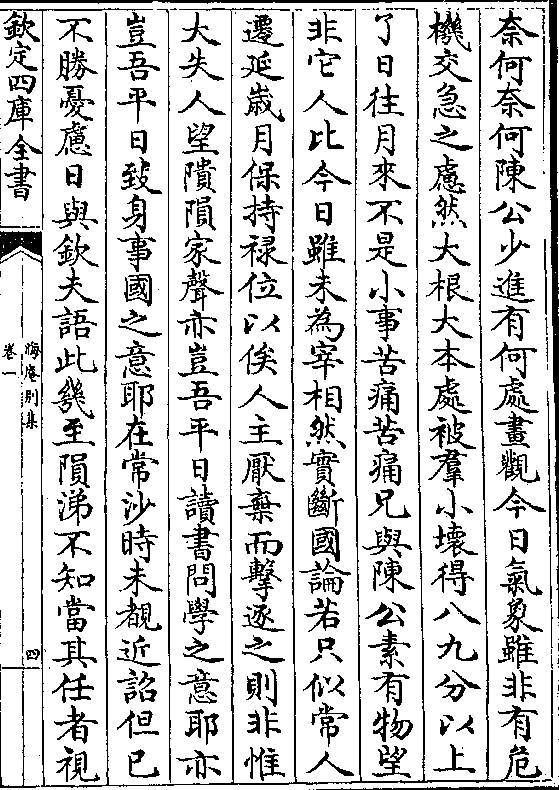 奈何奈何陳公少進有何處畫觀今日氣象雖非有危
機交急之慮然大根大本處被羣小壞得八九分以上
了日往月來不是小事苦痛苦痛兄與陳公素有物望
非它人比今日雖未為宰相然實斷國論若只似常人
遷延歲月保持禄位以俟人主厭棄而擊逐之則非惟
大失人望隤隕家聲亦豈吾平日讀書問學之意耶亦
豈吾平日致身事國之意耶在常沙時未覩近詔但已
不勝憂慮日與欽夫語此幾至隕涕不知當其任者視
欽定四庫全書
晦庵别集
卷一
四